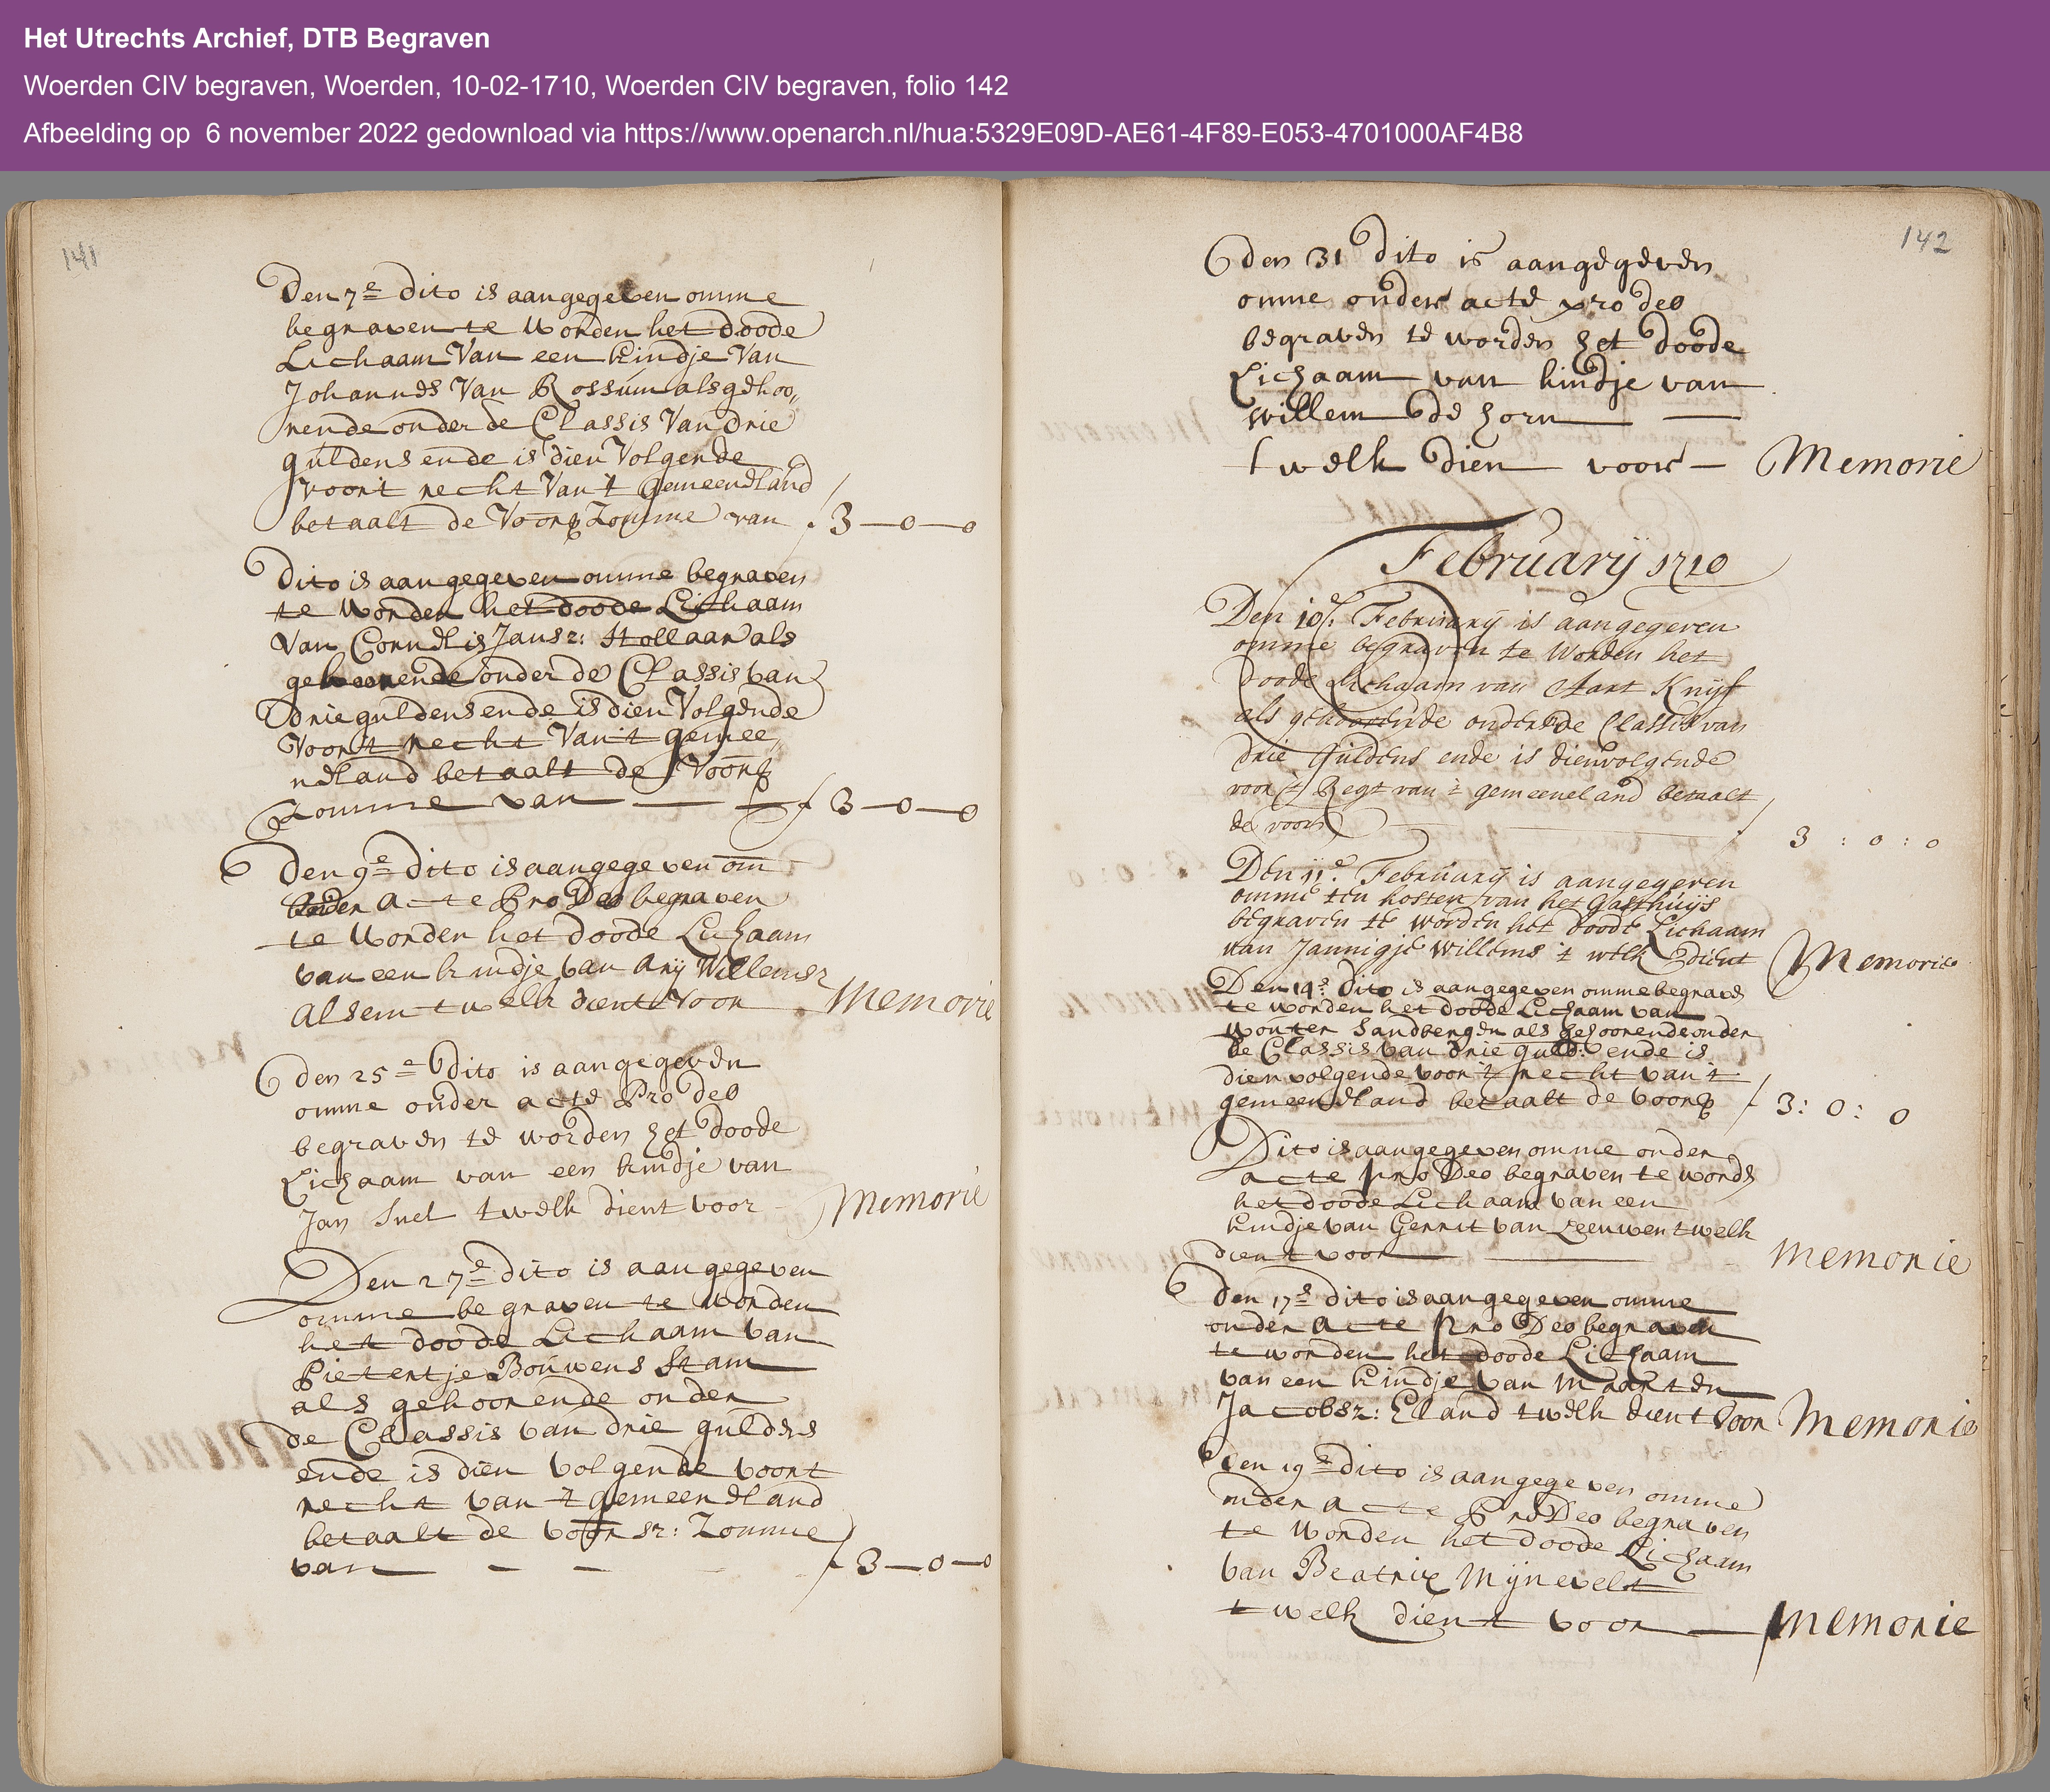 Het Utrechts Archief, DTB Begraven
Woerden CIV begraven, Woerden, 10-02-1710, Woerden CIV begraven, folio 142
Afbeelding op 6 november 2022 gedownload via https://www.openarch.nl/hua:5329E09D-AE61-4F89-E053-4701000AF4B8
141
Den 7e dito is aangegeven omme
begraven te worden het doode
Lichaam Van een kindje Van
Johannes Van Rossum als gehoo„
rende onder de Classis Van drie
guldens ende is dien Volgende
voor 't recht Van 't gemeeneland
betaalt de Voorsz Zomme van f 3—0—0
Dito is aangegeven omme begraven
te worden het doode Lichaam
Van Cornelis Jansz: Stollaar als
gehoorende onder de Classis van
drie guldens ende is dien Volgende
Voor 't recht Van 't gemee„
neland betaalt de Voorsz
Zomme van — f 3—0—0
Den 9e dito is aangegeven om
onder acte Pro Deo begraven
te worden het doode Lichaam
van een kindje van Arij Willemsz
Alsem twelk dient Voor Memorie
den 25e dito is aangegeven
omme onder acte Pro deo
begraven te worden het doode
Lichaam van een kindje van
Jan Snel twelk dient voor Memorie
Den 27e dito is aangegeven
omme begraven te worden
het doode Lichaam van
Pietertje Bouwens Stam
als gehoorende onder
de Classis van drie guldens
ende is dien volgende voor t
recht van 't gemeeneland
betaalt de voorsz: Zomme
van — — — f 3—0—0
142
den 31 dito is aangegeven
omme onder acte pro deo
begraven te worden het doode
Lichaam van kindje van
willem de horn —
twelk dien voor — Memorie
February 1710
Den 10e. February is aangegeven
omme begraven te Worden het
doode Lichaam van Aart Knijf
als gehoorende onder de Classis van
drie Guldens ende is dienvolgende
voor 't Regt van 't gemeeneland betaalt
de voors f 3 : 0 : 0
Den 11e. February is aangegeven
omme ten kosten van het Gasthuijs
begraven te worden het doode Lichaam
van Jannigje Willems 't welk dient Memorie
Den 14e. dito is aangegeven omme begraven
te worden het doode Lichaam van
Wouter Sandbergen als gehoorende onder
de Classis van drie guld: ende is
dien volgende voor 't recht van t
gemeeneland betaalt de voorsz f 3: 0: 0
Dito is aangegeven omme onder
acte pro Deo begraven te worden
het doode Lichaam van een
kindje van Gerrit van Leeuwen twelk
dient voor — Memorie
Den 17e dito is aangegeven omme
onder acte pro Deo begraven
te worden het doode Lichaam
van een kindje van Maarten
Jacobsz: Eland twelk dient voor Memorie
Den 19e dito is aangegeven omme
onder acte Pro Deo begraven
te worden het doode Lichaam
van Beatrix Mijnevelt
twelk dient voor — Memorie